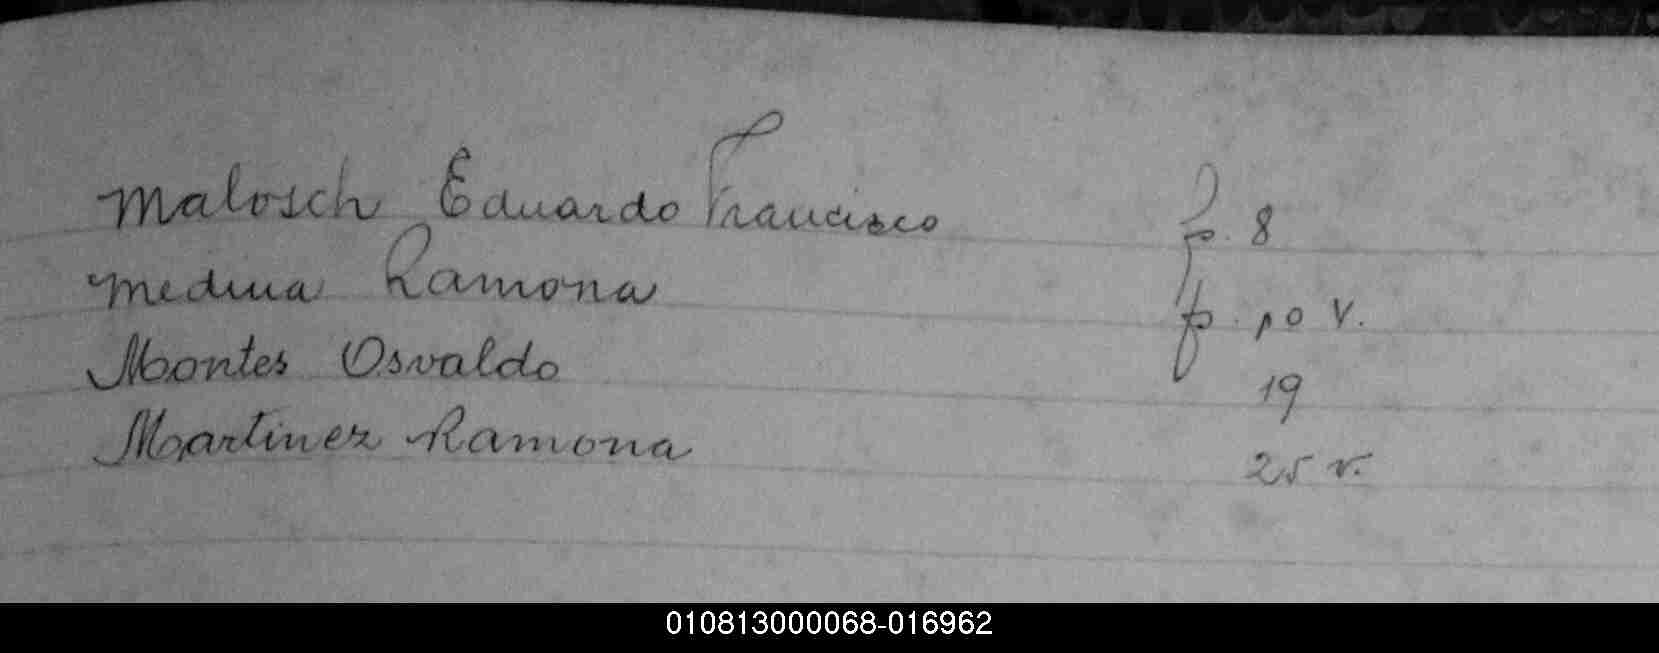 Malosch Eduardo Francisco f. 8
Medina Ramona f. 10 v.
Montes Osvaldo 19
Martinez Ramona 25 v.
010813000068-016962